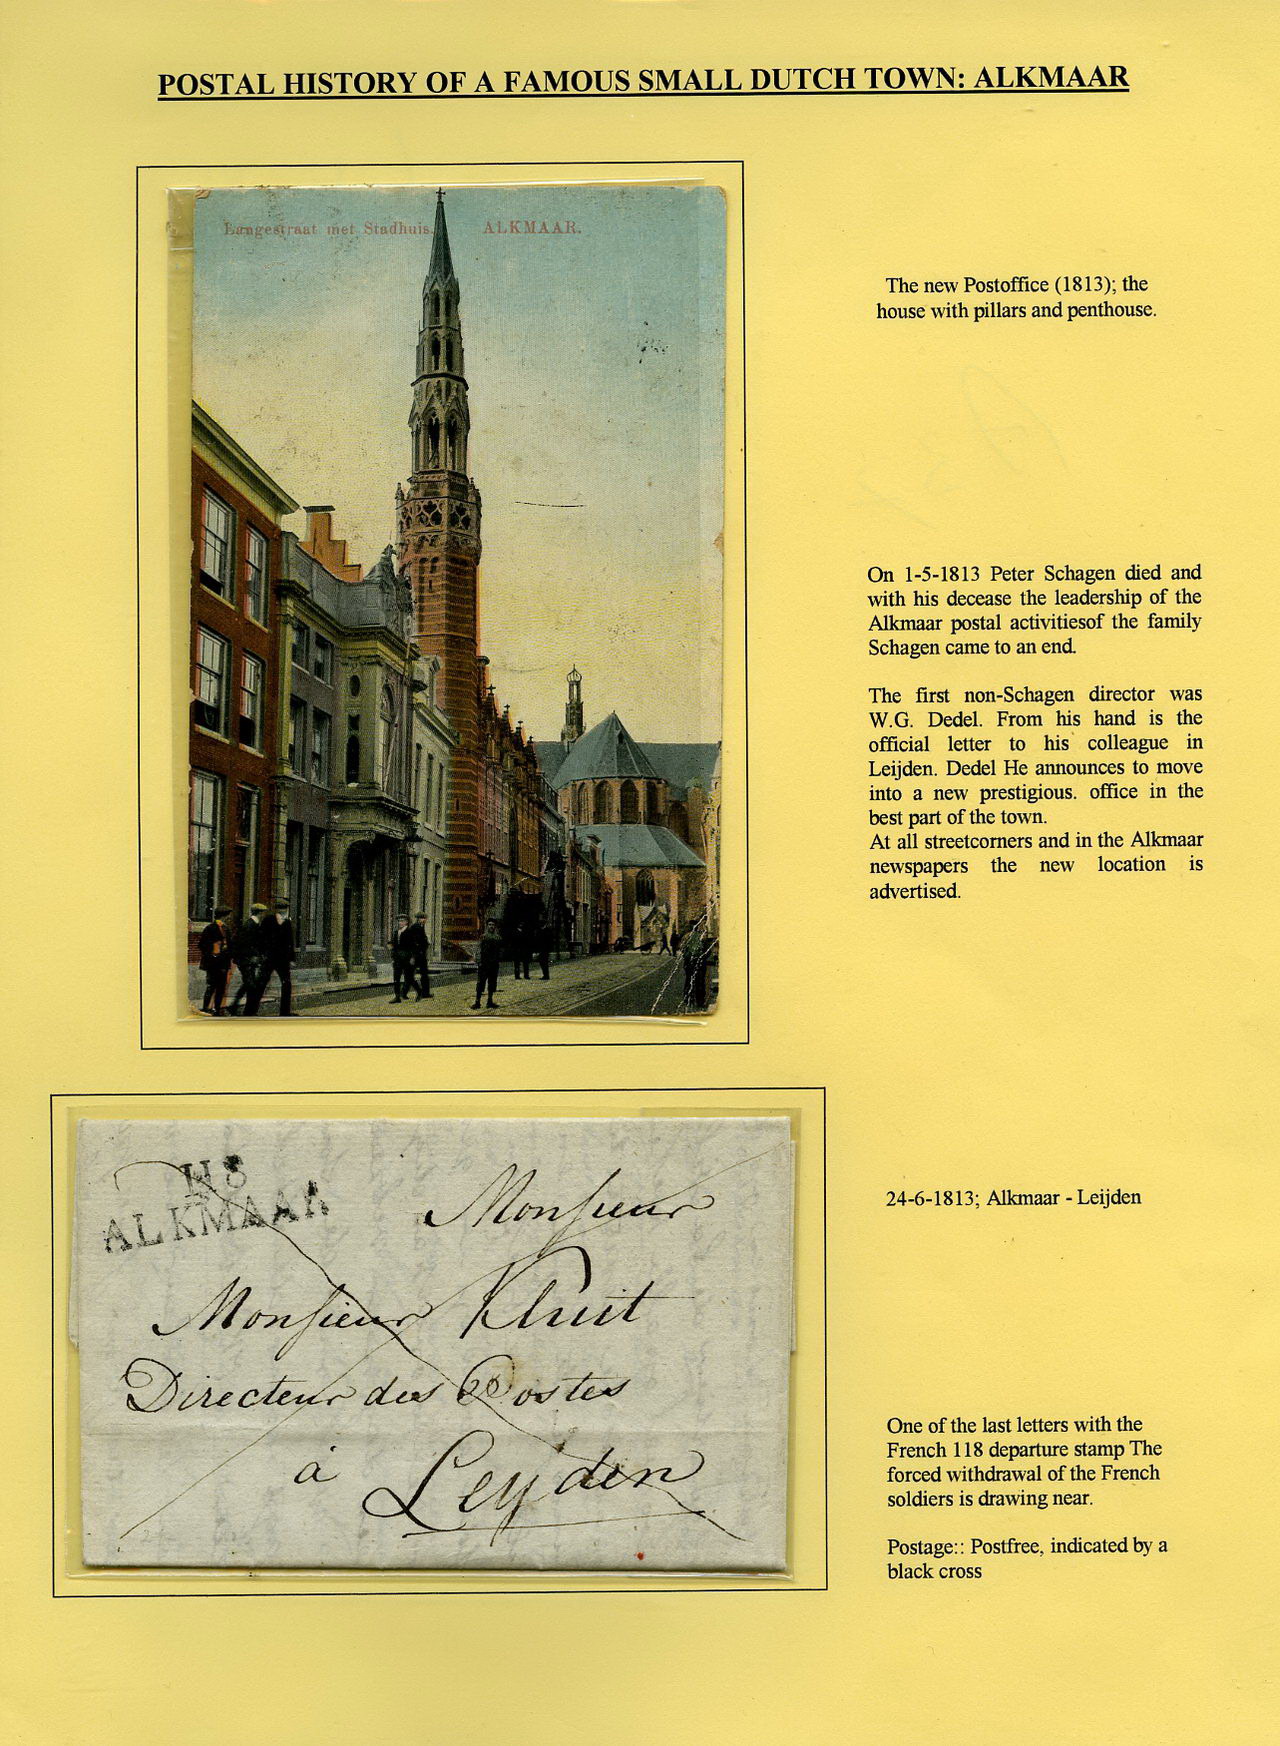 POSTAL HISTORY OF A FAMOUS SMALL DUTCH TOWN: ALKMAAR
Langestraat met Stadhuis. ALKMAAR.
The new Postoffice (1813); the
house with pillars and penthouse.
On 1-5-1813 Peter Schagen died and
with his decease the leadership of the
Alkmaar postal activitiesof the family
Schagen came to an end.
The first non-Schagen director was
W.G. Dedel. From his hand is the
official letter to his colleague in
Leijden. Dedel He announces to move
into a new prestigious. office in the
best part of the town.
At all streetcorners and in the Alkmaar
newspapers the new location is
advertised.
118
ALKMAAR
Monsieur
Monsieur Kluit
Directeur des Postes
à Leyden
24-6-1813; Alkmaar - Leijden
One of the last letters with the
French 118 departure stamp The
forced withdrawal of the French
soldiers is drawing near.
Postage:: Postfree, indicated by a
black cross